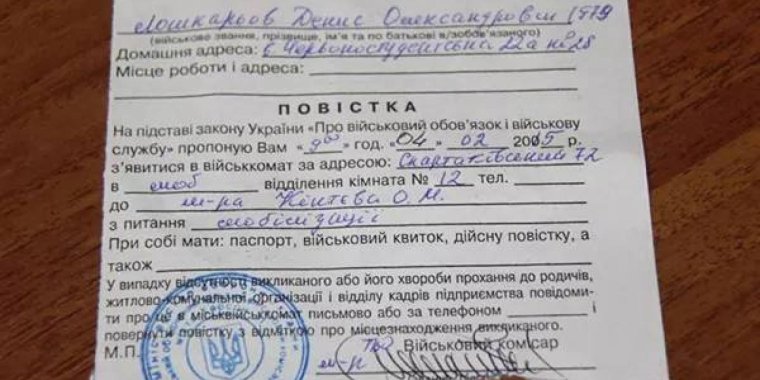 Лошкарьов Денис Олександрович 1979
(військове звання, прізвище, ім'я та по батькові в/зобов'язаного)
Домашня адреса: в. Червоностудентська 22а №28
Місце роботи і адреса:
ПОВІСТКА
На підставі закону України «Про військовий обов'язок і військову
службу» пропоную Вам «9⁰⁰» год. «04» 02 2015 р.
з'явитися в військкомат за адресою: 72
в моб відділення кімната № 12 тел.
до м-ра О. М.
з питання мобілізації
При собі мати: паспорт, військовий квиток, дійсну повістку, а
також
У випадку відсутності викликаного або його хвороби прохання до родичів,
житлово-комунальної організації і відділу кадрів підприємства повідоми-
ти про це в міськвійськкомат письмово або за телефоном і
повернути повістку з відміткою про місцезнаходження викликаного.
М.П. Військовий комісар
м-р